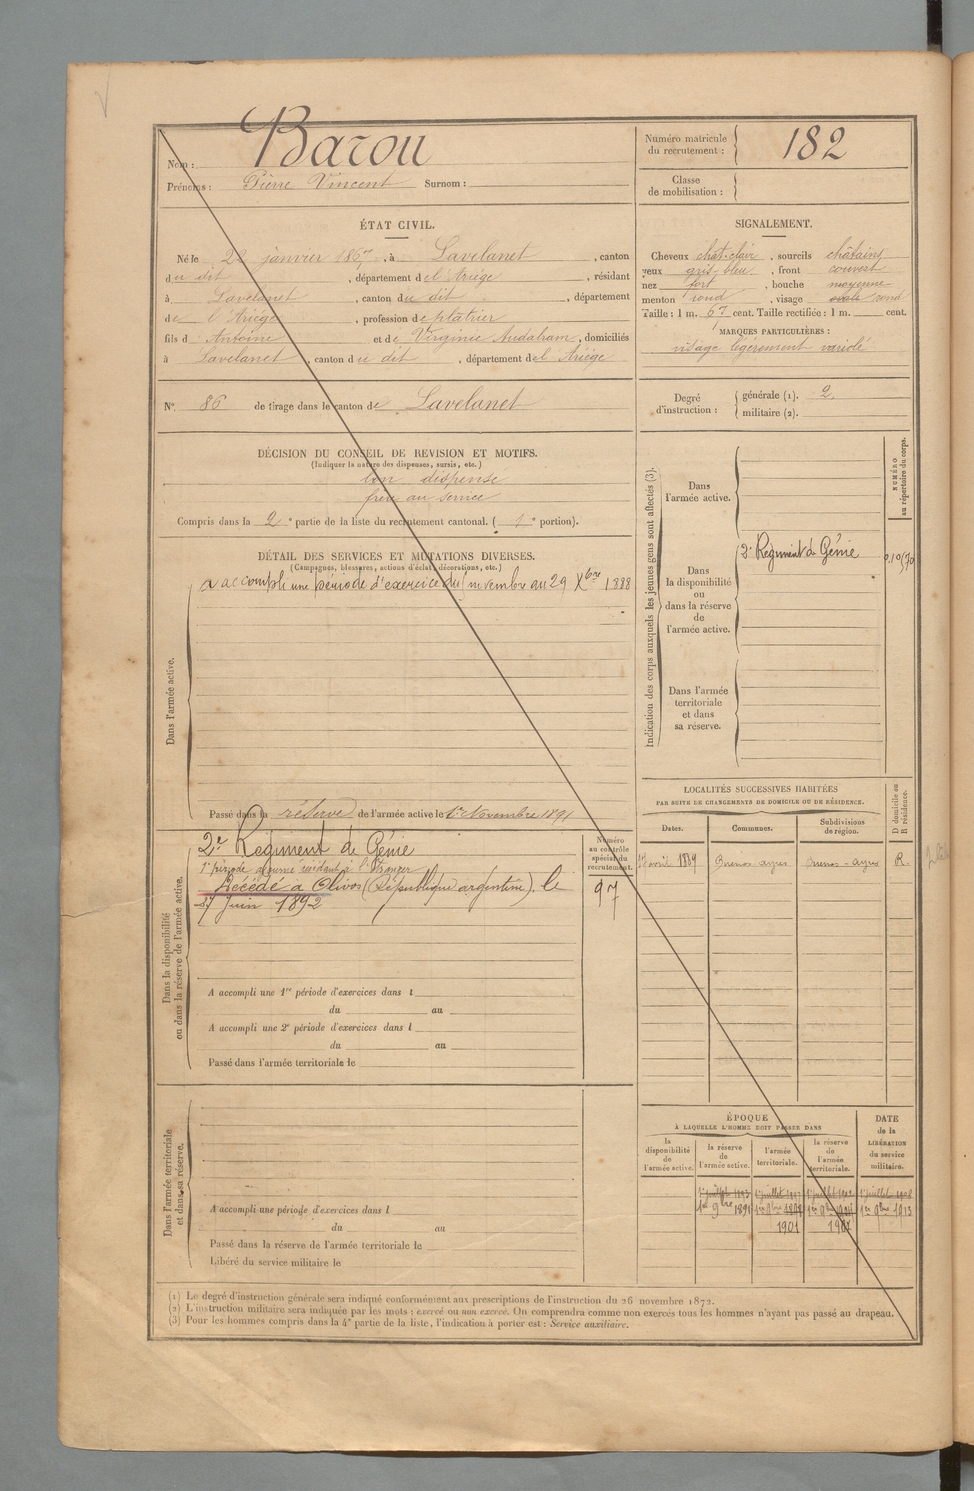 Nom : Barou
Prénoms : Pierre Vincent Surnom :
Numéro matricule du recrutement : 182
Classe de mobilisation :
ÉTAT CIVIL.
Né le 22 janvier 1867, à Lavelanet, canton
du dit, département de l'Ariège, résidant
à Lavelanet, canton du dit, département
de l'Ariège, profession de plâtrier
fils d' Antoine et de Virginie Audabram, domiciliés
à Lavelanet, canton du dit, département de l'Ariège
SIGNALEMENT.
Cheveux chat. clair, sourcils châtains
yeux gris-bleu, front couvert
nez fort, bouche moyenne
menton rond, visage ovale rond
Taille : 1 m. 67 cent. Taille rectifiée : 1 m. cent.
MARQUES PARTICULIÈRES :
visage légèrement variolé
N° 86 de tirage dans le canton de Lavelanet
Degré d'instruction : générale (1). 2
militaire (2).
DÉCISION DU CONSEIL DE REVISION ET MOTIFS.
(Indiquer la nature des dispenses, sursis, etc.)
bon dispensé
frère au service
Compris dans la 2e partie de la liste du recrutement cantonal. ( 1e portion).
DÉTAIL DES SERVICES ET MUTATIONS DIVERSES.
(Campagnes, blessures, actions d'éclat, décorations, etc.)
Dans l'armée active.
a accompli une période d'exercice du 1 novembre au 29 Xbre 1888
Passé dans la réserve de l'armée active le 1er Novembre 1891
Indication des corps auxquels les jeunes gens sont affectés (3).
NUMÉRO au répertoire du corps.
Dans l'armée active.
Dans la disponibilité ou dans la réserve de l'armée active.
2e Régiment de Génie
Dans l'armée territoriale et dans sa réserve.
Dans la disponibilité ou dans la réserve de l'armée active.
2e Régiment de Génie
1e période ajourné résidant à l'Etranger
Décédé à Olivos (République argentine), le
27 Juin 1892
Numéro au contrôle spécial du recrutement.
97
A accompli une 1re période d'exercices dans l
du au
A accompli une 2e période d'exercices dans l
du au
Passé dans l'armée territoriale le
LOCALITÉS SUCCESSIVES HABITÉES
PAR SUITE DE CHANGEMENTS DE DOMICILE OU DE RÉSIDENCE.
Dates. Communes. Subdivisions de région. D domicile ou R résidence.
17 avril 1889 Buenos-ayres Buenos-ayres R.
Dans l'armée territoriale et dans sa réserve.
A accompli une période d'exercices dans l
du au
Passé dans la réserve de l'armée territoriale le
Libéré du service militaire le
ÉPOQUE
À LAQUELLE L'HOMME DOIT PASSER DANS
la disponibilité de l'armée active. la réserve de l'armée active. l'armée territoriale. la réserve de l'armée territoriale. DATE de la LIBÉRATION du service militaire.
1er juillet 1893 1er juillet 1902 1er juillet 1908
1er 9bre 1891 1er 9bre 1er 9bre 1er 9bre 1913
1901 1907
(1) Le degré d'instruction générale sera indiqué conformément aux prescriptions de l'instruction du 26 novembre 1872.
(2) L'instruction militaire sera indiquée par les mots : exercé ou non exercé. On comprendra comme non exercés tous les hommes n'ayant pas passé au drapeau.
(3) Pour les hommes compris dans la 4e partie de la liste, l'indication à porter est : Service auxiliaire.